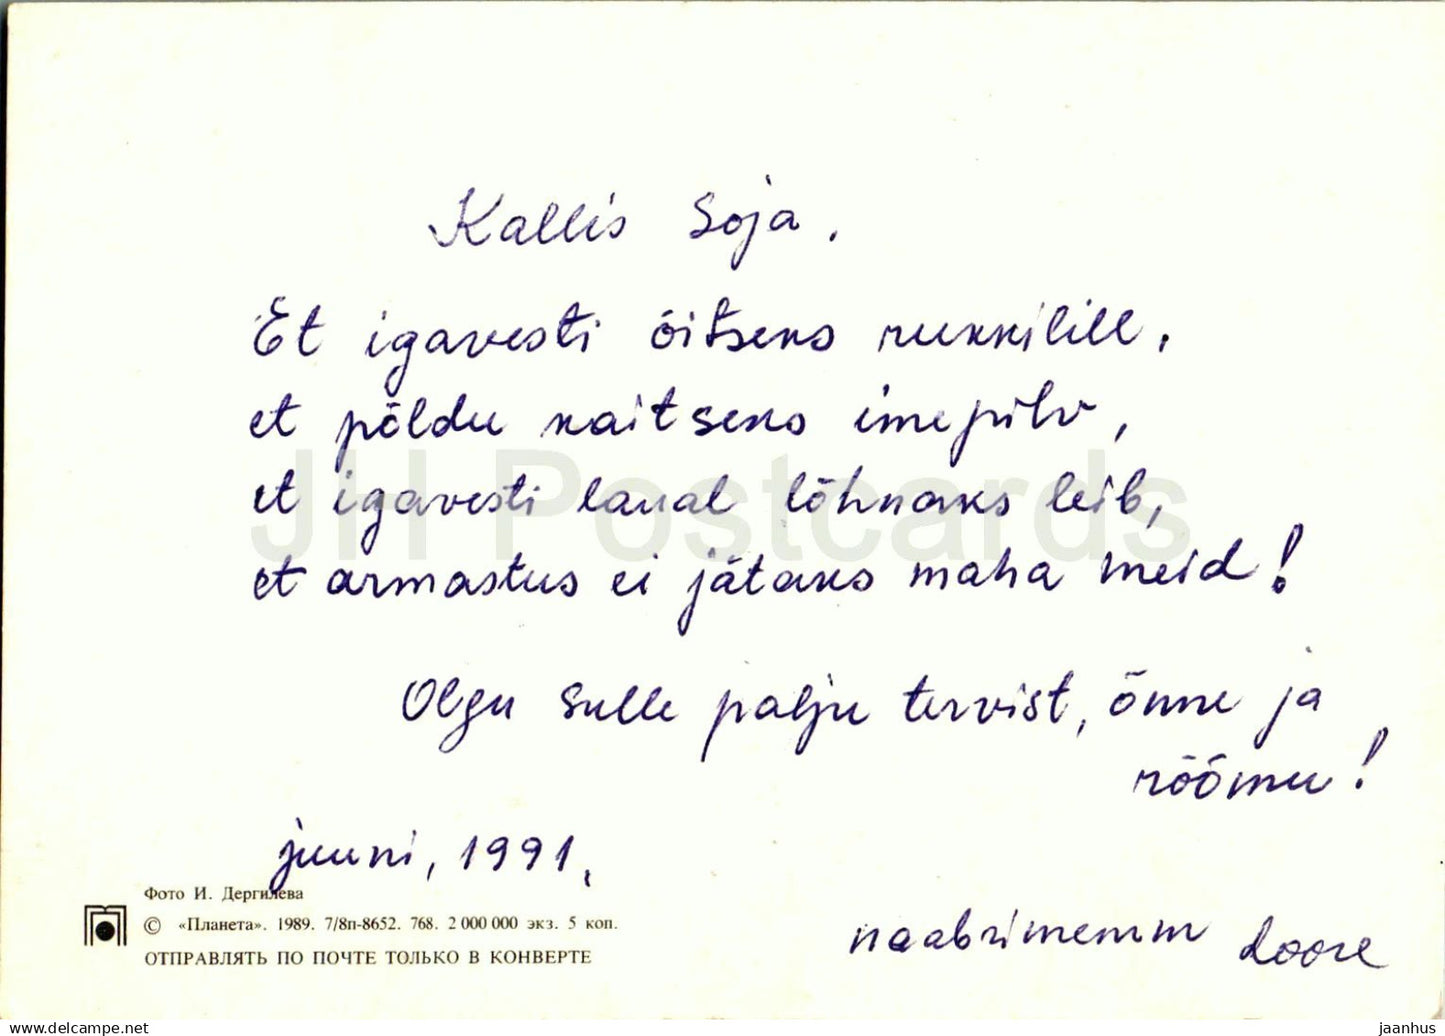 Kallis Soja.
Et igavesti õitseks rukkilill,
et põldu kaitseks imepilv,
et igavesti laual lõhnaks leib,
et armastus ei jätaks maha meid!
Olgu Sulle palju tervist, õnne ja
rõõmu!
juuni, 1991.
naabrimemm Loore
Фото И. Дергилева
© «Планета». 1989. 7/8п-8652. 768. 2 000 000 экз. 5 коп.
ОТПРАВЛЯТЬ ПО ПОЧТЕ ТОЛЬКО В КОНВЕРТЕ
JH Postcards
www.delcampe.net
jaanhus